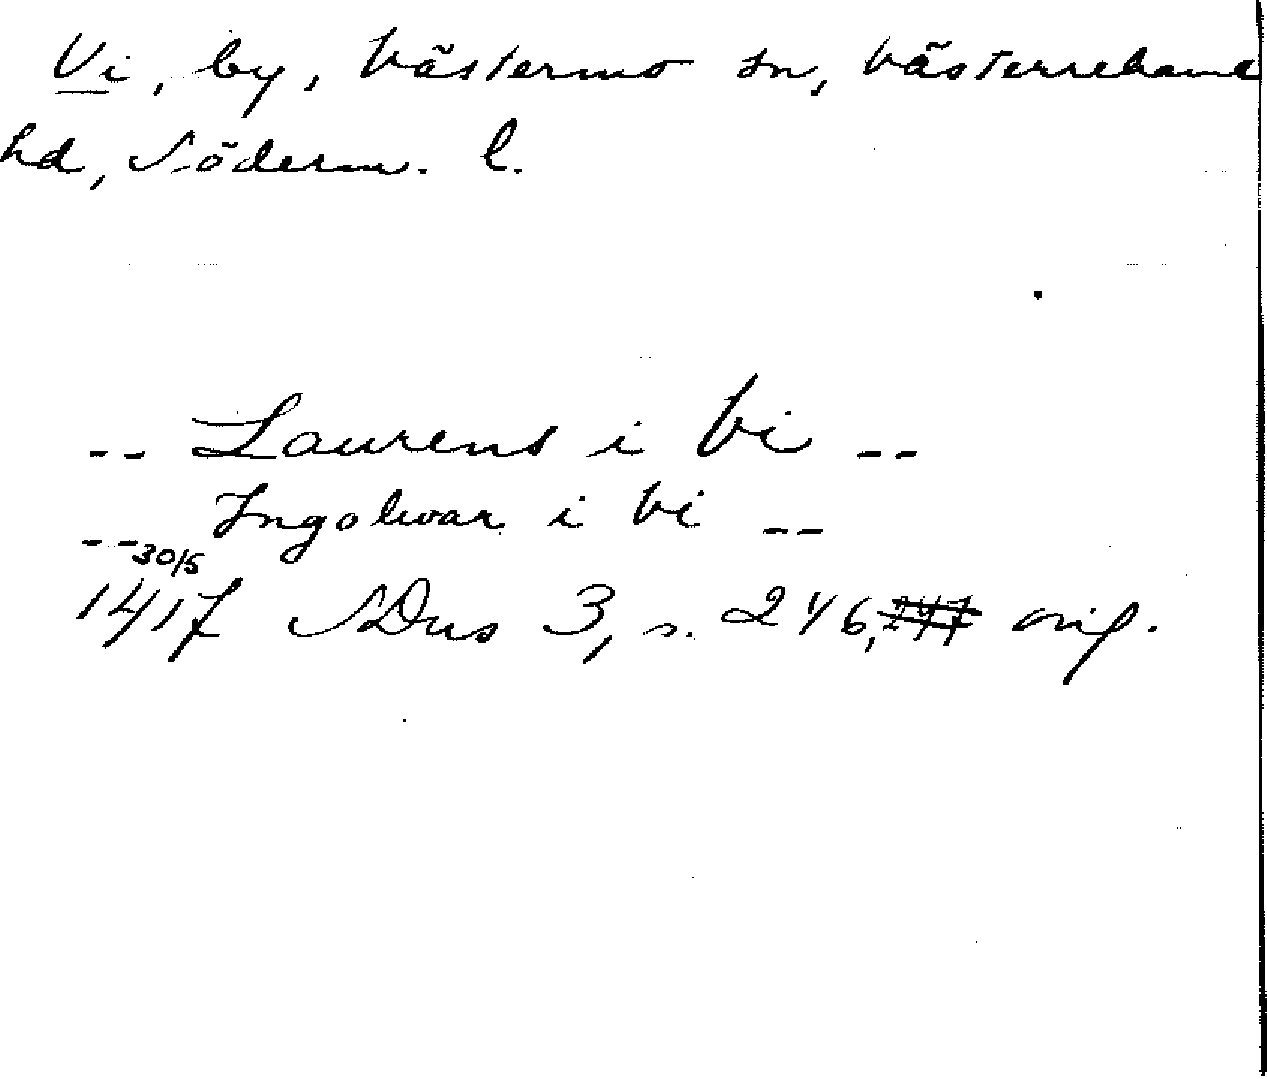 Vi, by, Västermo sn, Västerrekarne
hd, Söderm. l.
-- Laurens i Vi --
-- Ingolwar i Vi --
30/5
1417 SDns 3, s. 246, 247 orig.